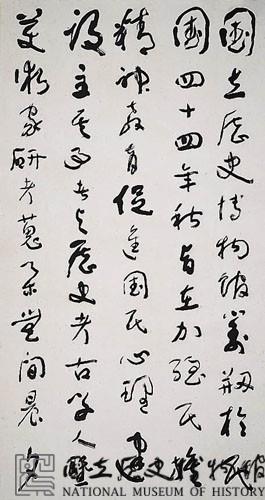 國立歷史博物館筹剏於民
國四十四年秋旨在加強民
精神教育促進國民心理建
設主其事者與歷史考古學人
美術家研考蒐采黨間晨夕
國立歷史博物館
NATIONAL MUSEUM OF HISTORY